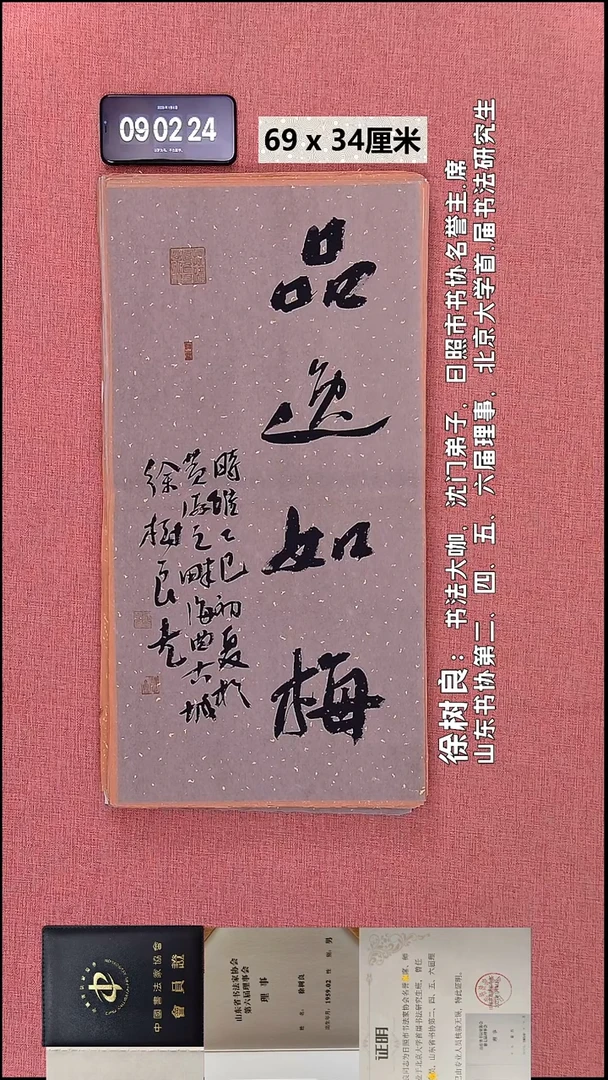 09 02 24
69 x 34厘米
品逸如梅
时维乙巳初夏于
黄海之畔海曲古城
徐树良书
徐树良：书法大咖，沈门弟子，日照市书协名誉主.席
山东书协第二、四、五、六届理事，北京大学首.届书法研究生
中國書法家協會
會員證
山东省书法家协会
第六届理事会
理事
姓名：徐树良
性别：男
出生年月：1959.02
证明